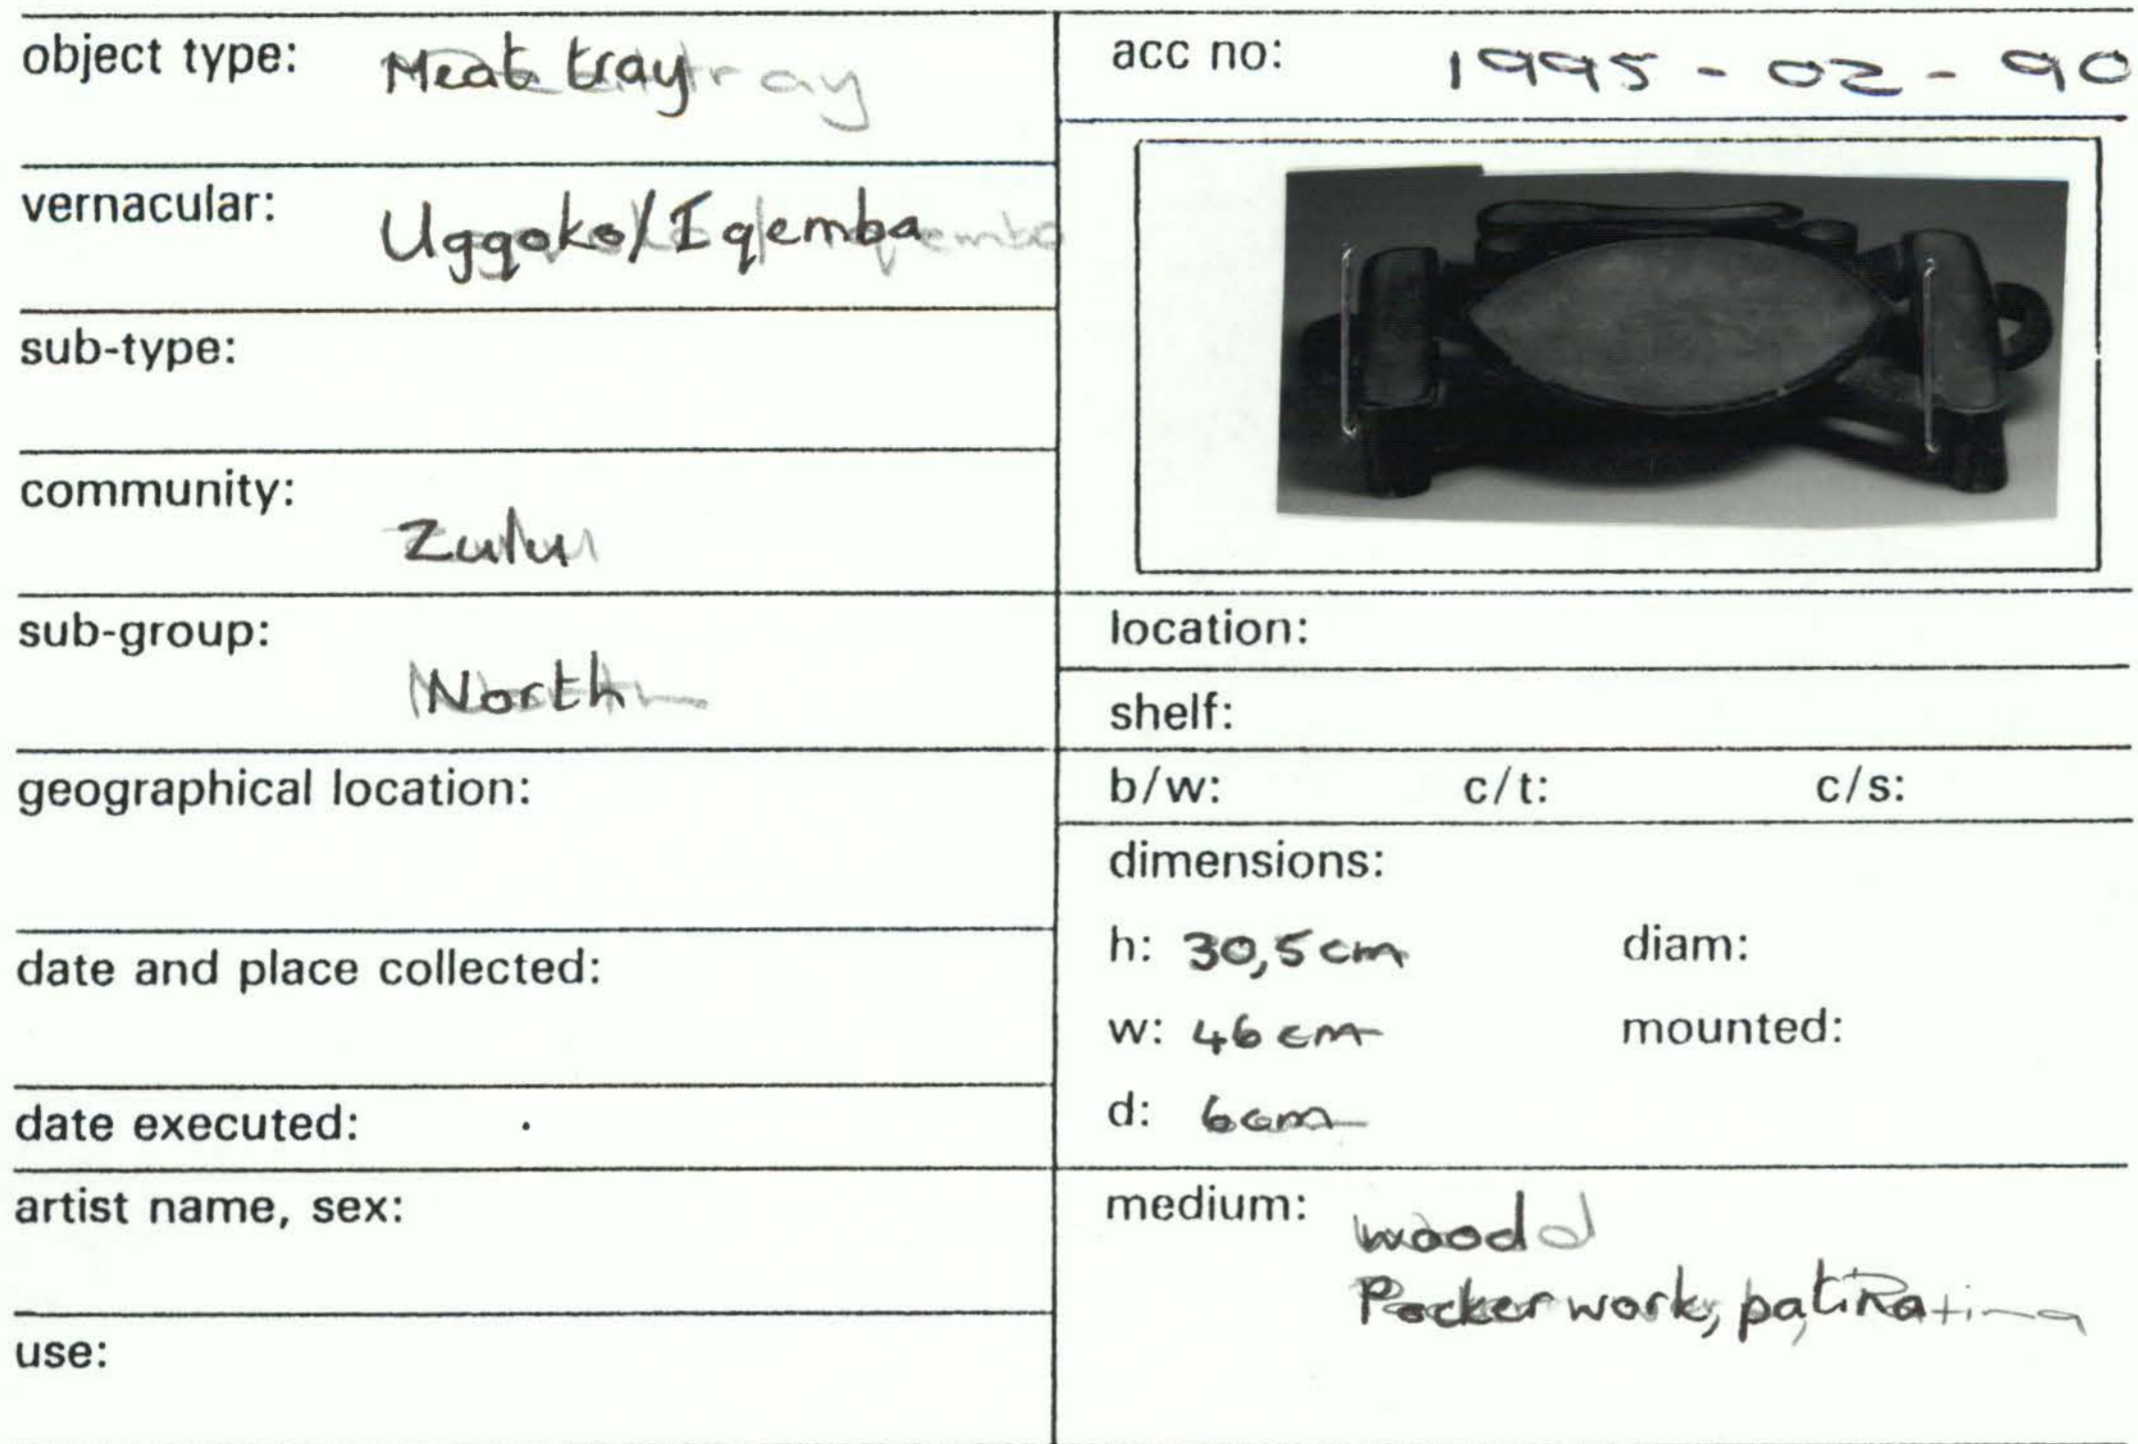 object type: Meat tray
vernacular: Ugqoko/Iqemba
sub-type:
community: Zulu
sub-group: North
geographical location:
date and place collected:
date executed:
artist name, sex:
use:
acc no: 1995-02-90
location:
shelf:
b/w: c/t: c/s:
dimensions:
h: 30,5cm diam:
w: 46cm mounted:
d: 6cm
medium: wood
Pocker work, patina